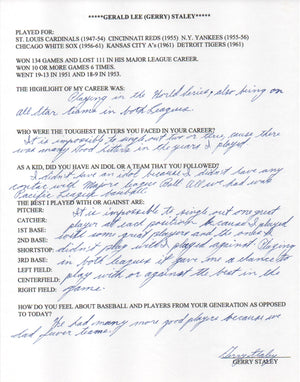 *****GERALD LEE (GERRY) STALEY*****
PLAYED FOR:
ST. LOUIS CARDINALS (1947-54) CINCINNATI REDS (1955) N.Y. YANKEES (1955-56)
CHICAGO WHITE SOX (1956-61) KANSAS CITY A's (1961) DETROIT TIGERS (1961)
WON 134 GAMES AND LOST 111 IN HIS MAJOR LEAGUE CAREER.
WON 10 OR MORE GAMES 6 TIMES.
WENT 19-13 IN 1951 AND 18-9 IN 1953.
THE HIGHLIGHT OF MY CAREER WAS:
Playing in the World Series, also being on
all Star teams in both Leagues.
WHO WERE THE TOUGHEST BATTERS YOU FACED IN YOUR CAREER?
It is impossible to single out two or three, cause there
was many good hitters in the years I played
AS A KID, DID YOU HAVE AN IDOL OR A TEAM THAT YOU FOLLOWED?
I didn't have an idol because I didn't have any
contact with Major League Ball. All we had was
Pacific League baseball.
THE BEST I PLAYED WITH OR AGAINST ARE:
PITCHER: It is impossible to single out one great
CATCHER: player at each position. Because I played
1ST BASE: with some great players and the ones
2ND BASE: I
SHORTSTOP: didn't play with I played against. Playing
3RD BASE: in both leagues it gave me a chance to
LEFT FIELD: play with or against the best in the
CENTERFIELD:
RIGHT FIELD: game.
HOW DO YOU FEEL ABOUT BASEBALL AND PLAYERS FROM YOUR GENERATION AS OPPOSED
TO TODAY?
We had many more good players because we
had fewer teams.
Gerry Staley
GERRY STALEY